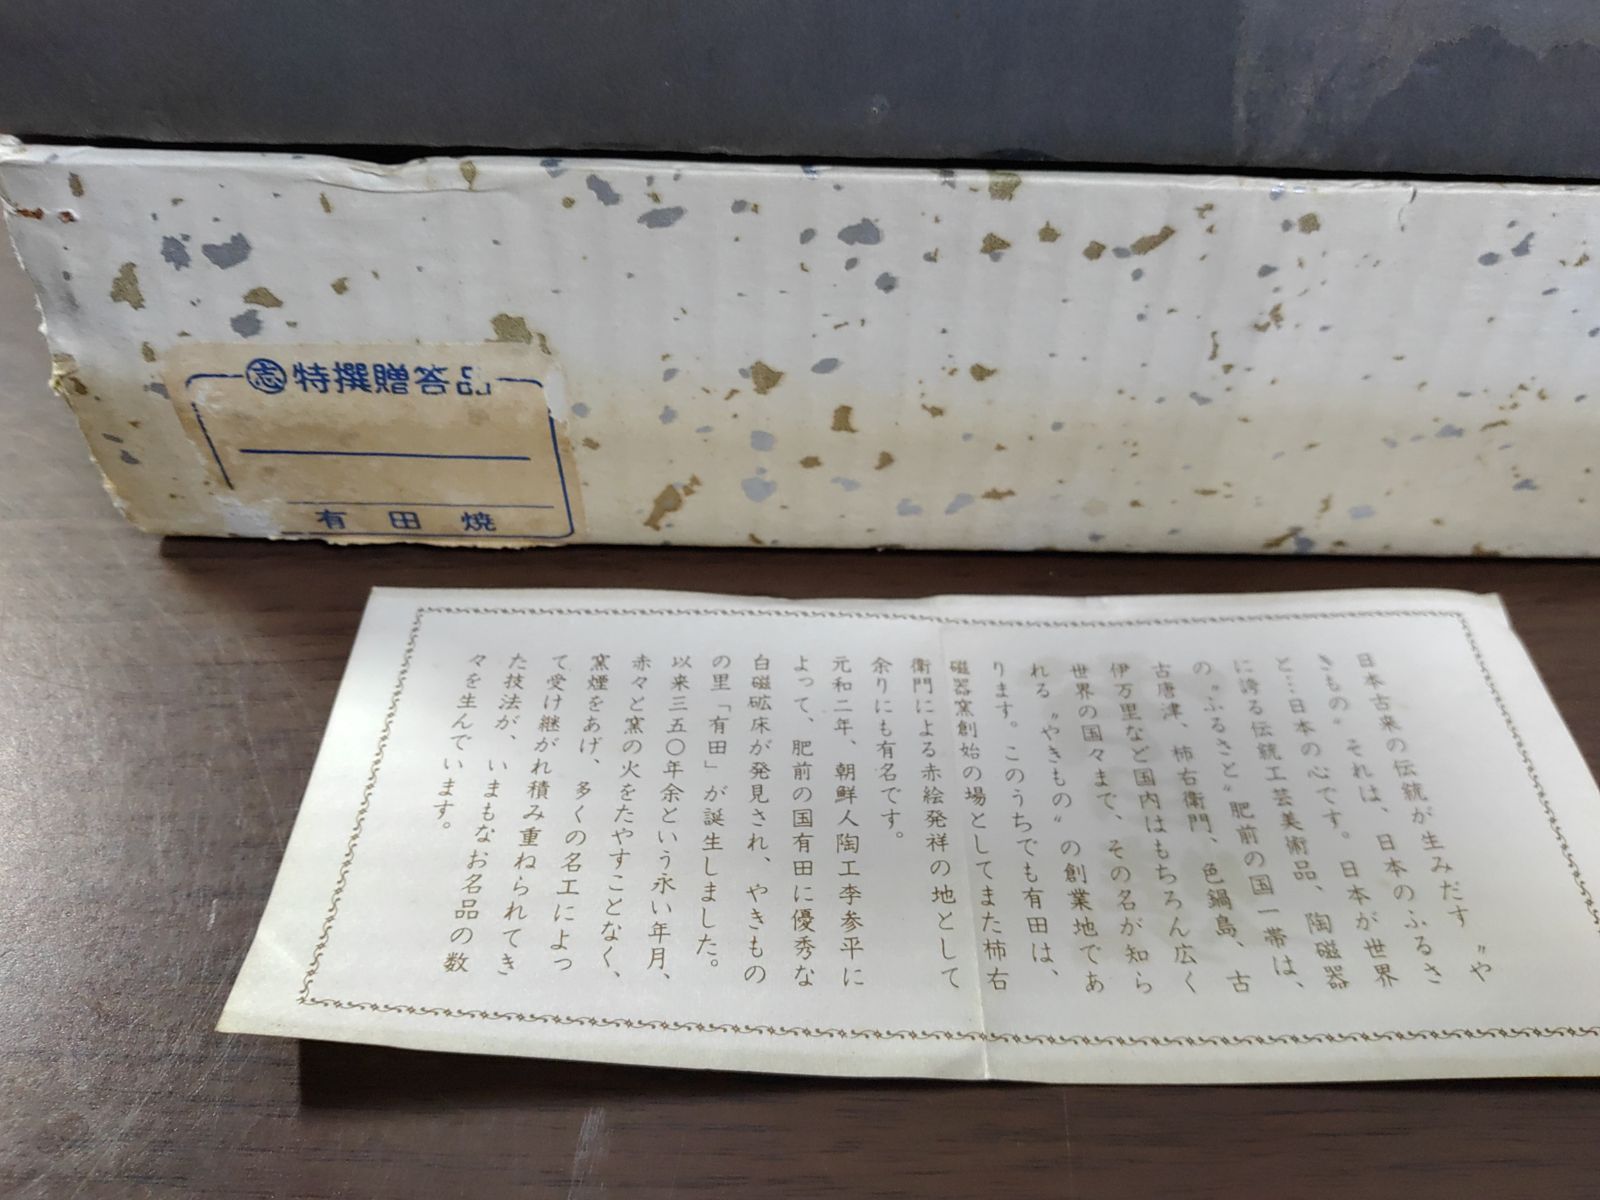 志特撰贈答品
有田焼
日本古来の伝統が生みだす〝や
きもの〟それは、日本のふるさ
と…日本の心です。日本が世界
に誇る伝統工芸美術品、陶磁器
の〝ふるさと〟肥前の国一帯は、
古唐津、柿右衛門、色鍋島、古
伊万里など国内はもちろん広く
世界の国々まで、その名が知ら
れる〝やきもの〟の創業地であ
ります。このうちでも有田は、
磁器窯創始の場としてまた柿右
衛門による赤絵発祥の地として
余りにも有名です。
元和二年、朝鮮人陶工李参平に
よって、肥前の国有田に優秀な
白磁砿床が発見され、やきもの
の里「有田」が誕生しました。
以来三五〇年余という永い年月、
赤々と窯の火をたやすことなく、
窯煙をあげ、多くの名工によっ
て受け継がれ積み重ねられてき
た技法が、いまもなお名品の数
々を生んでいます。